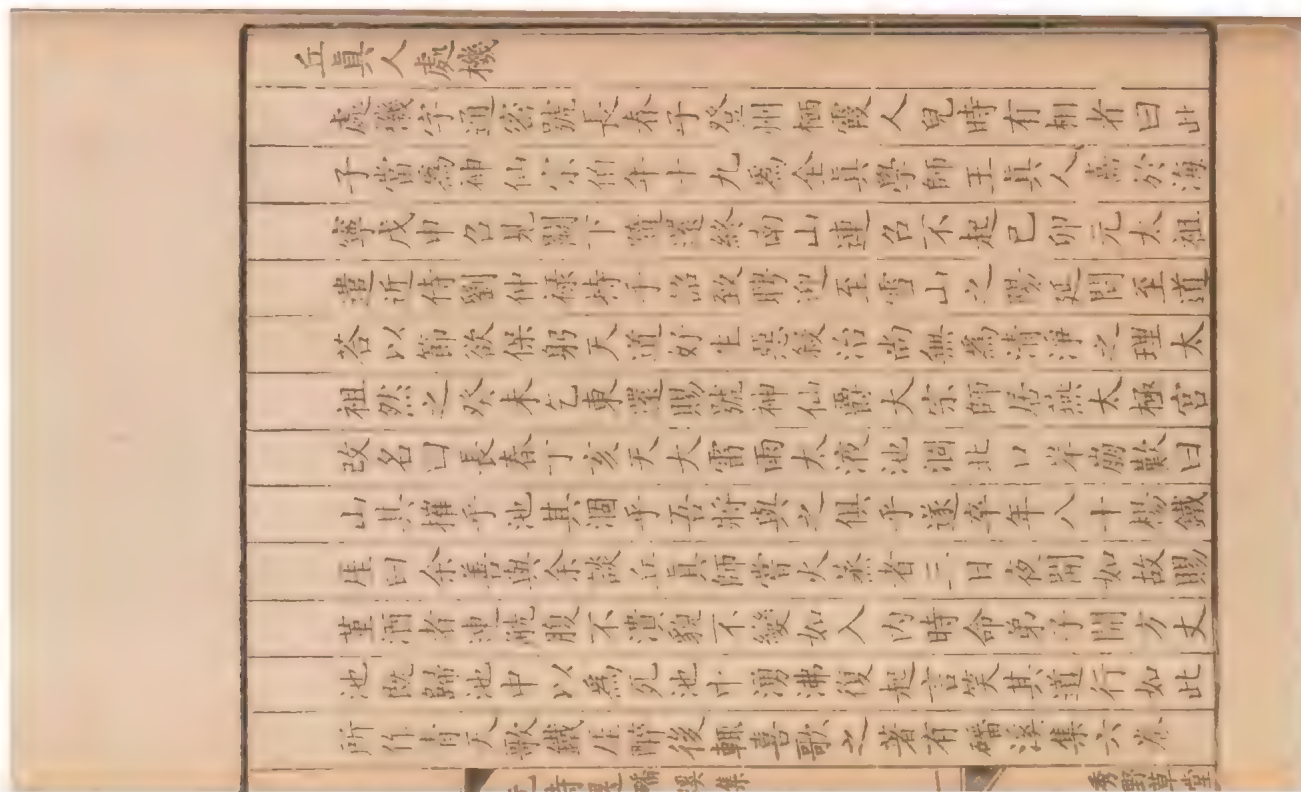 丘真人處機
處機字通密號長春子登州栖霞人兒時有相者曰此
子當為神仙宗伯年十九為全真學師王真人嚞於海
寧戊申召見闕下隨還終南山連召不起己卯元太祖
遣近侍劉仲祿持手詔致聘迎至雪山之陽延問至道
答以節欲保躬天道好生惡殺治尚無為清淨之理太
祖然之癸未乞東還賜號神仙爵大宗師居燕太極宮
改名曰長春丁亥天大雷雨太液池涸北口岸崩歎曰
山其摧乎池其涸乎吾將與之俱乎遂卒年八十楊鐵
厓曰余善與余談丘真師當火蒸者三日夜開如故賜
堇酒者連觥腹不潰貌不變如入內時命弟子開方丈
池既歸池中以為死池中湧沸復起言笑其道行如此
所作青天歌鐵厓醉後輒喜歌之著有磻溪集六卷
元詩選 磻溪集
秀野草堂